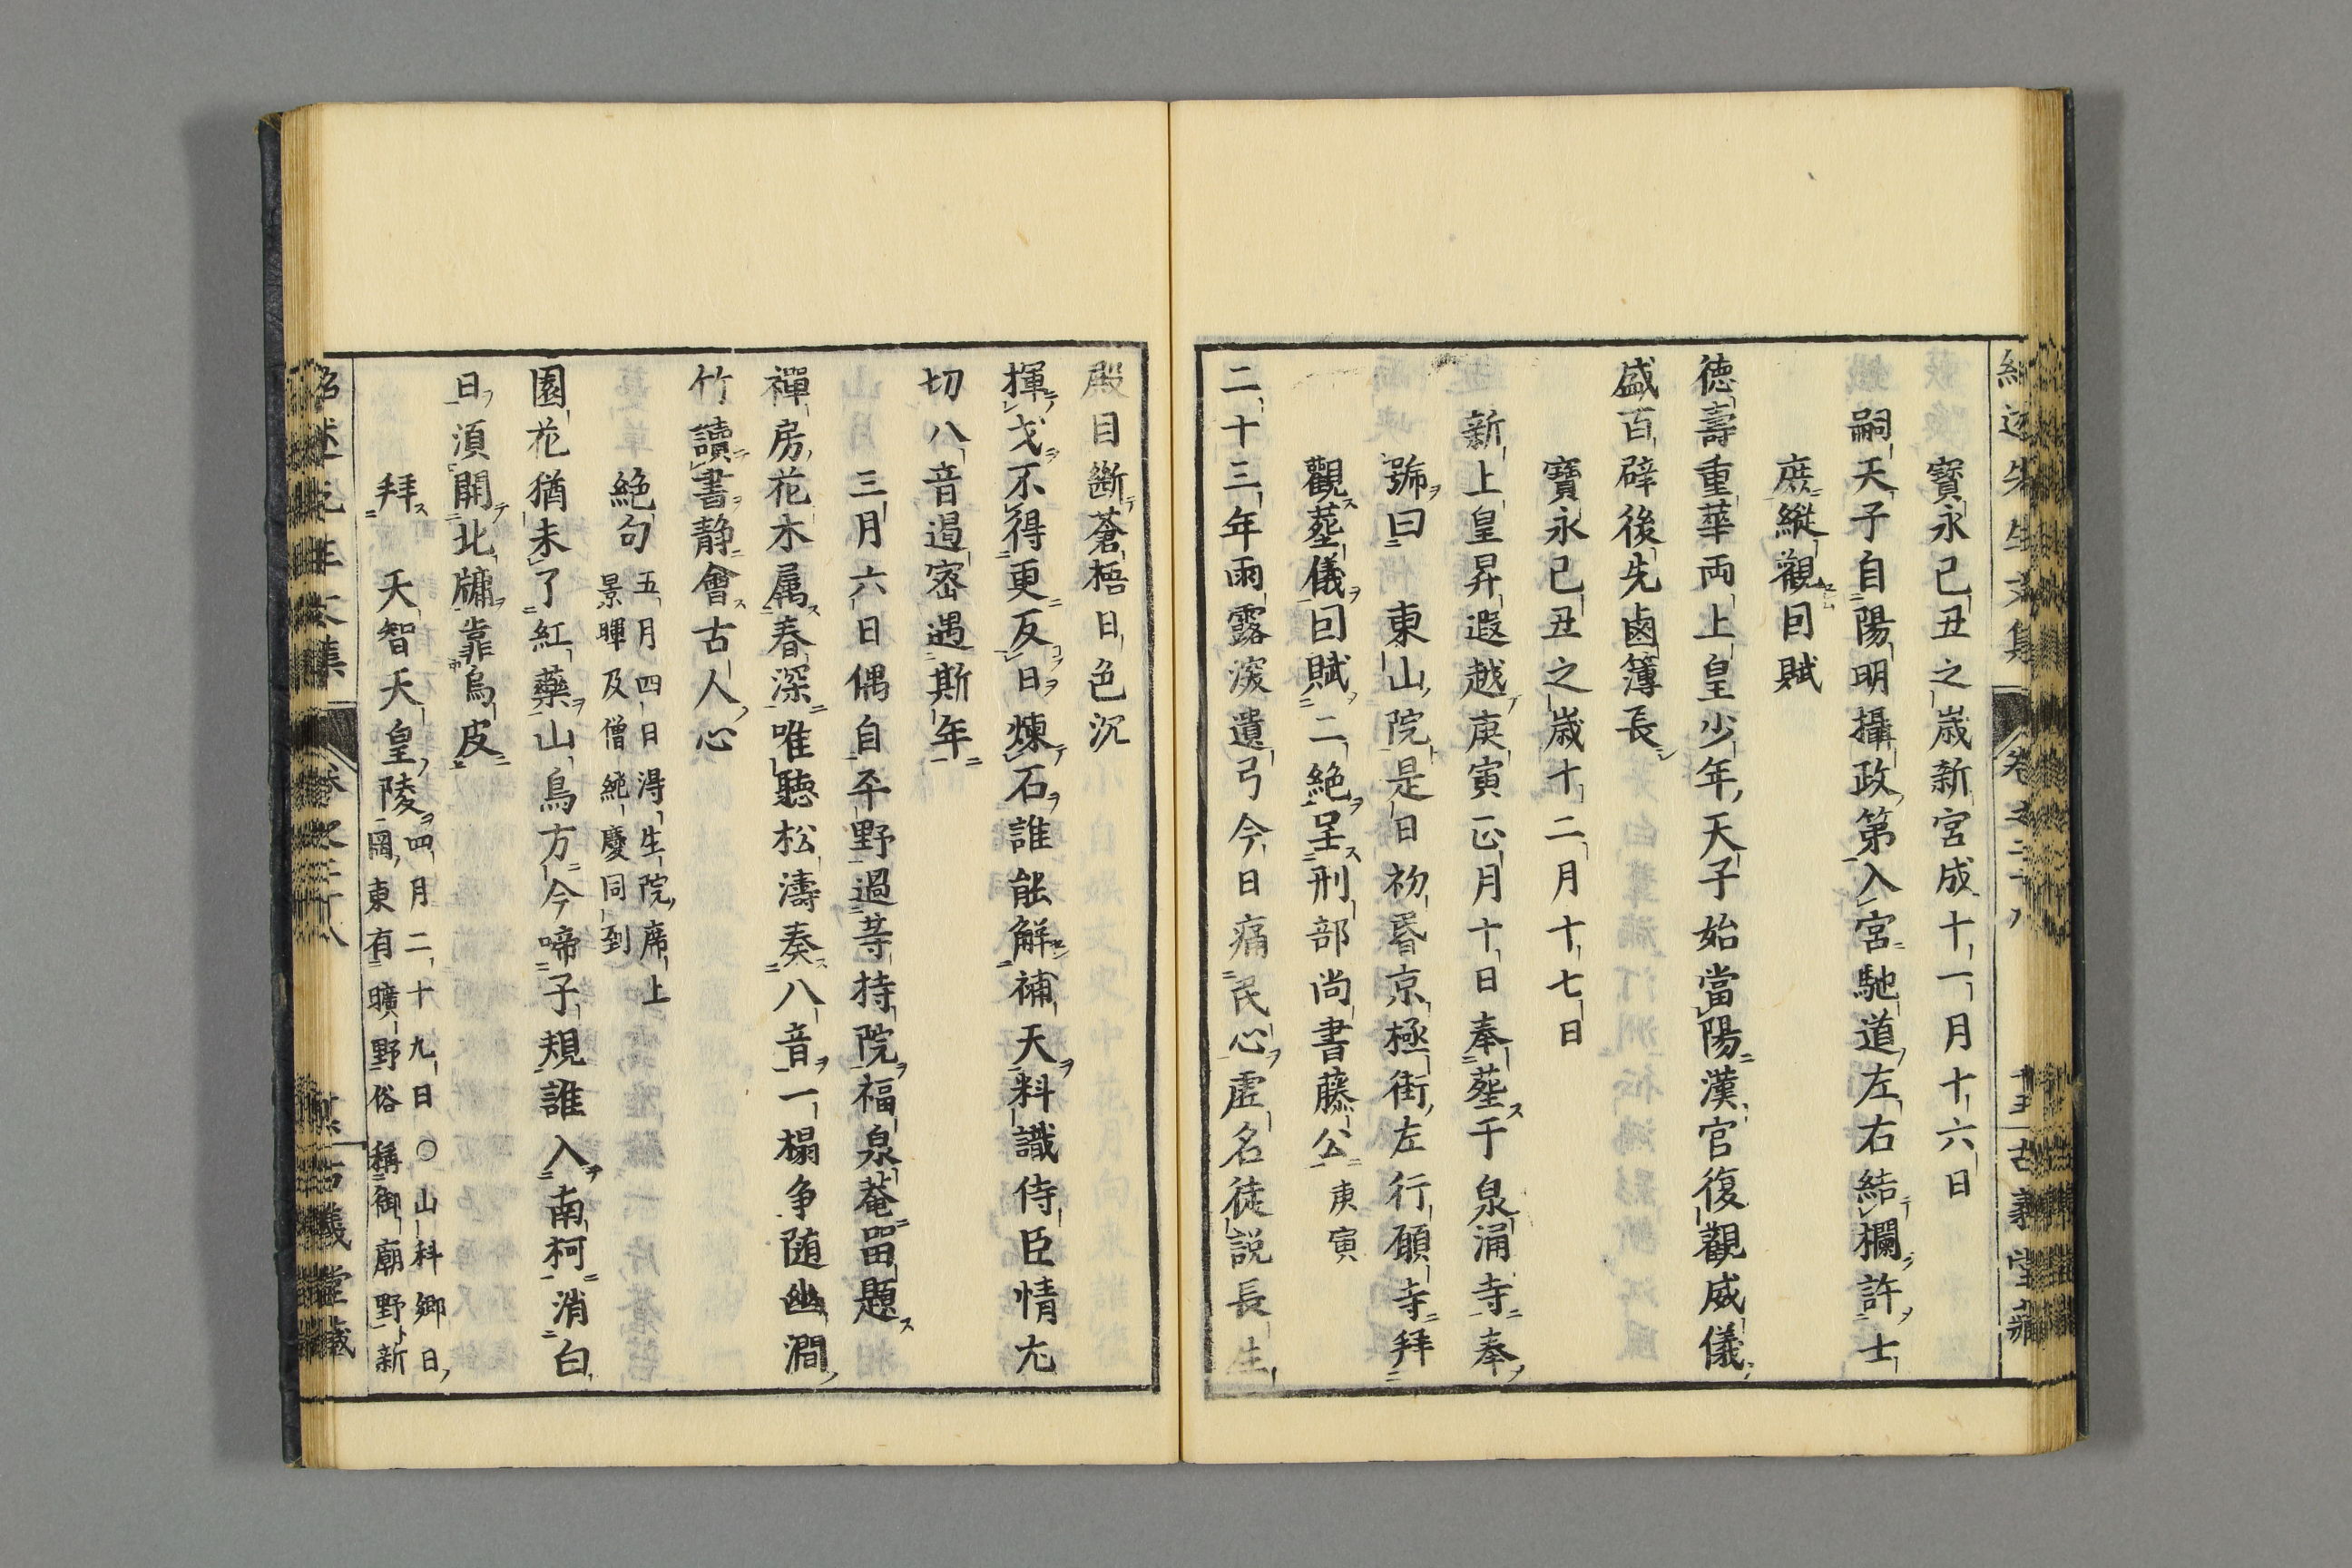 寶永己丑之歳新宮成十一月十六日
嗣天子自陽明攝政第入宮馳道左右結欄許士
庶縱觀囙賦
徳壽重華両上皇少年天子始當陽漢官復觀威儀
盛百辟後先鹵簿長
寶永己丑之歳十二月十七日
新上皇昇遐越庚寅正月十日奉葬于泉涌寺奉
號曰　東山院是日初昬京極街左行願寺拜
觀葬儀囙賦二絶呈刑部尚書藤公庚寅
二十三年雨露深遺弓今日痛民心虚名徒説長生
殿目斷蒼梧日色沉
揮戈不得更反日煉石誰能解補天料識侍臣情尤
切八音遏宻遇斯年
三月六日偶自平野過等持院福泉菴畱題
禪房花木属春深唯聽松濤奏八音一榻争随幽澗
竹讀書静會古人心
絶句
五月四日淂生院席上
景暉及僧純慶同到
園花猶未了紅藥山鳥方今啼子規誰入南柯消白
日湏開北牖靠烏皮
拜　天智天皇陵
四月二十九日○山科郷日
岡東有曠野俗稱御廟野新
紹述先生文集　卷之二十八　古義堂藏